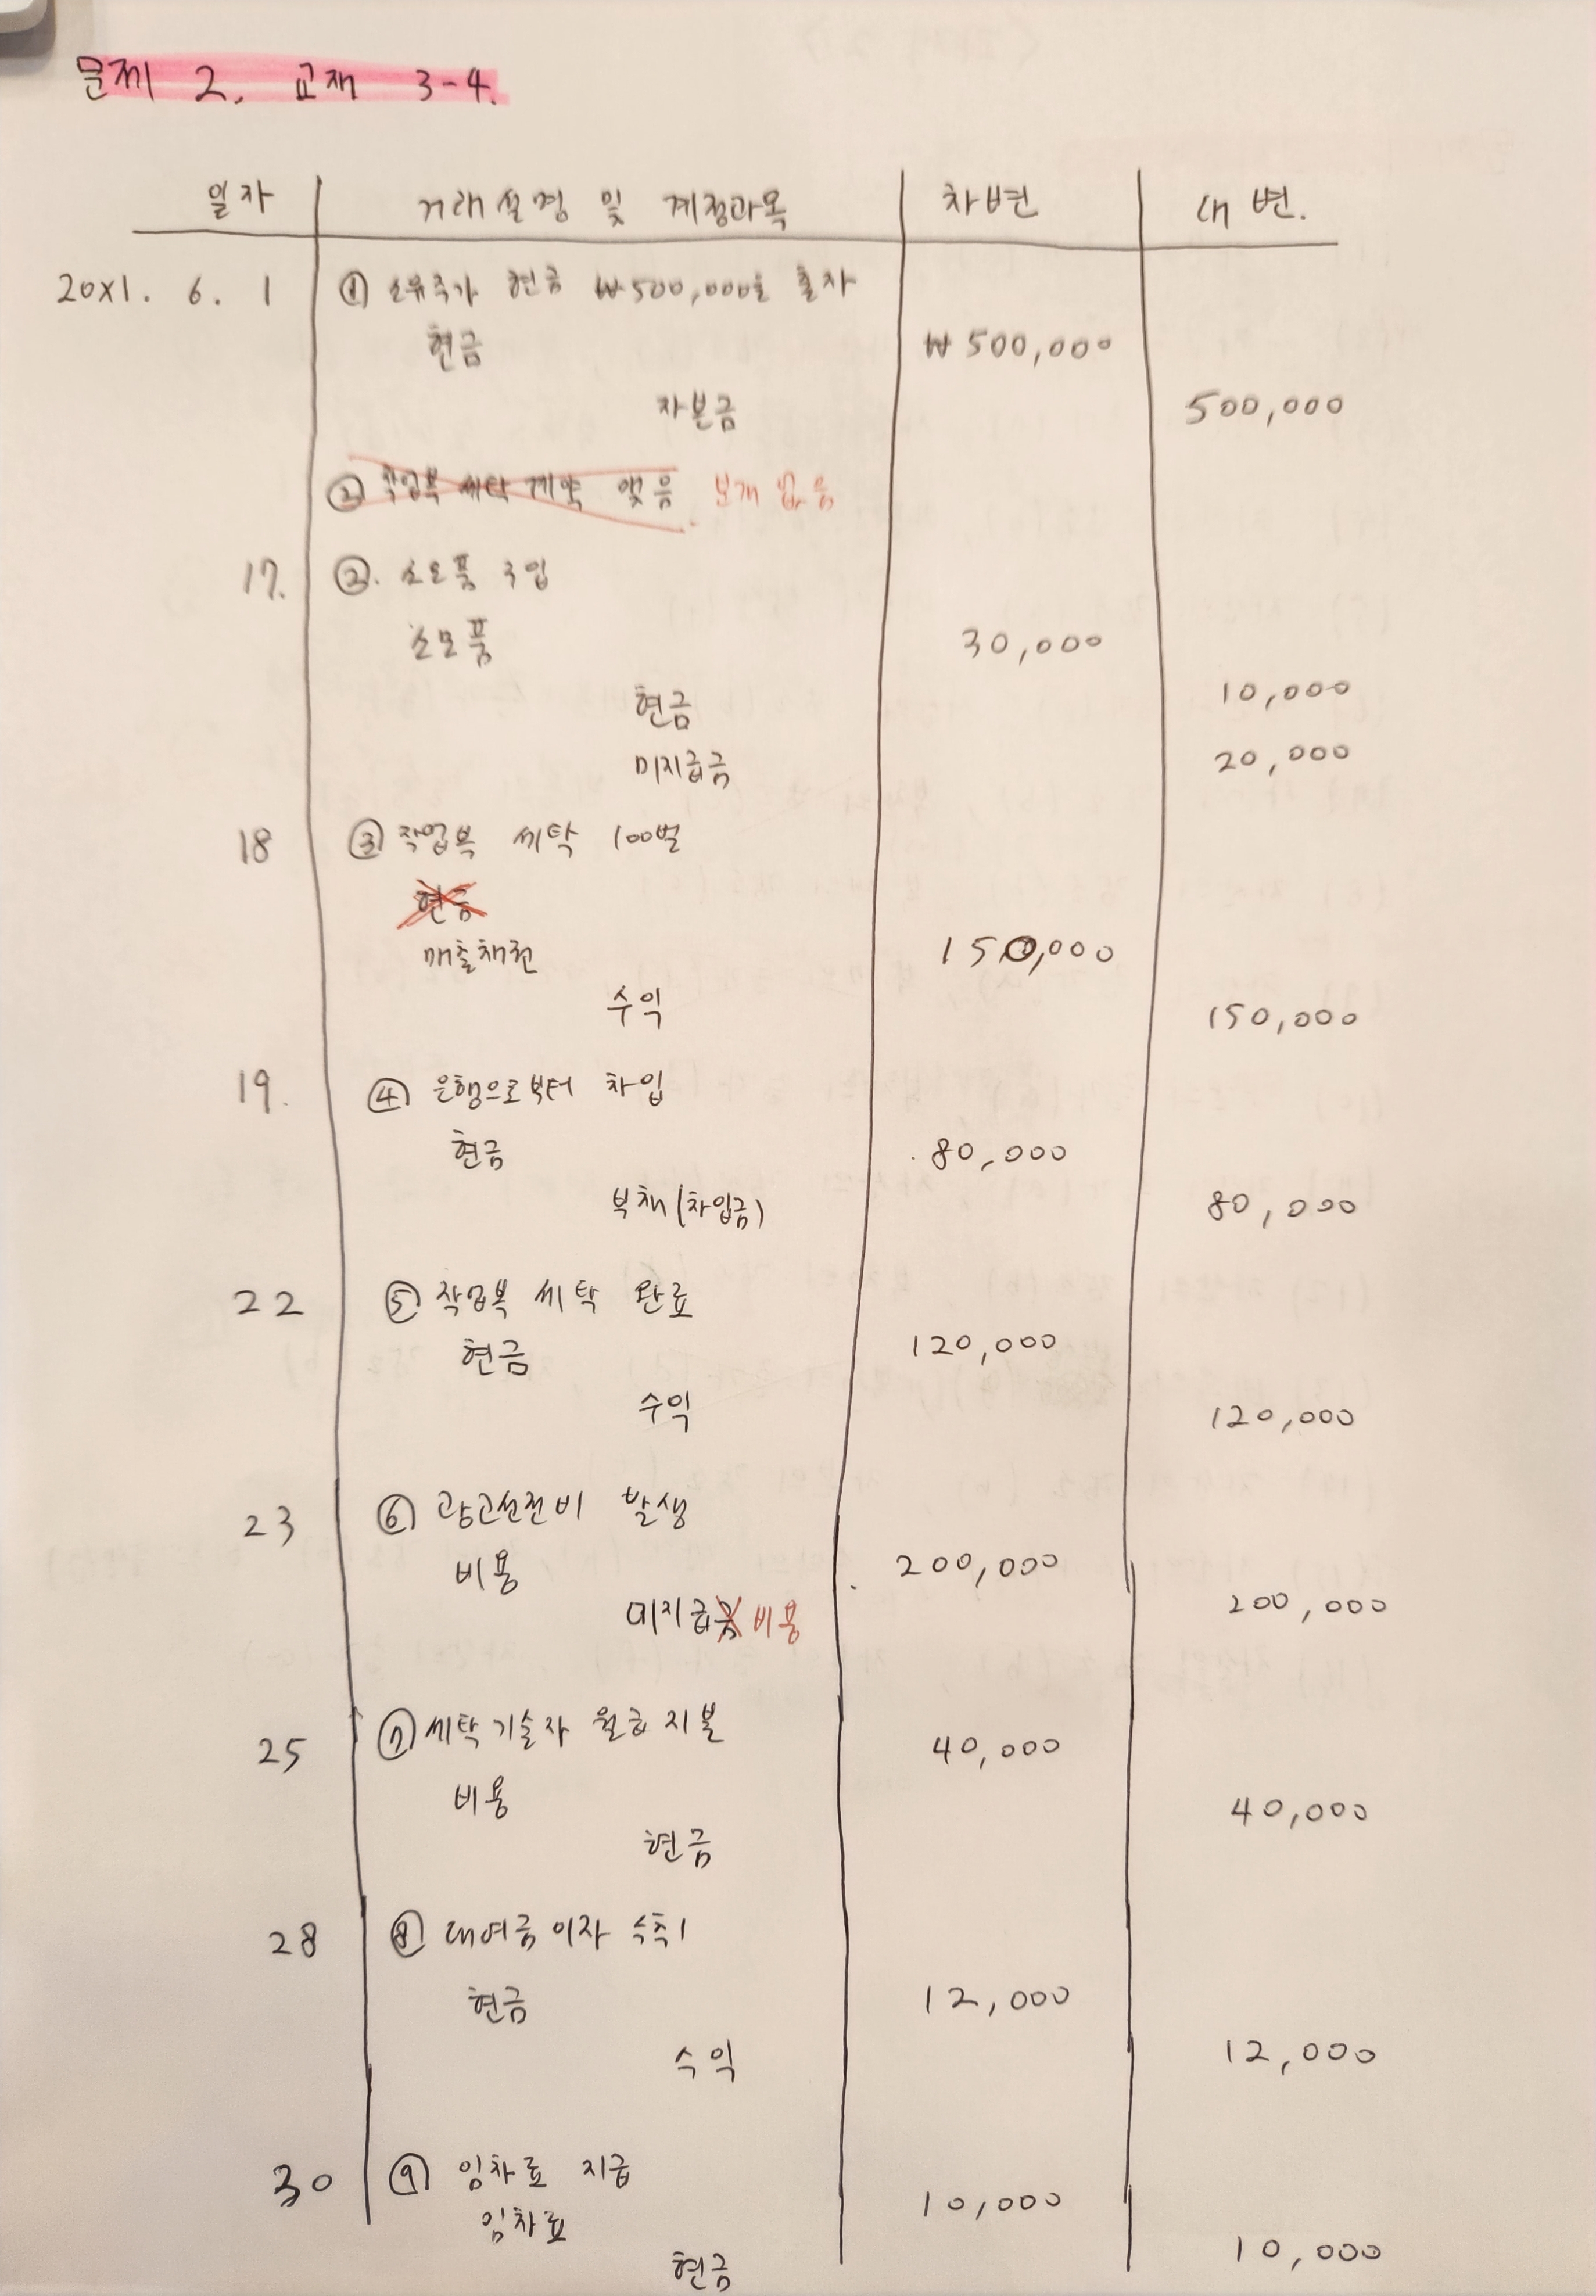 문제 2. 교재 3-4.
일자 거래설명 및 계정과목 차변 대변.
20x1. 6. 1 ① 소유주가 현금 ₩500,000을 출자
현금 ₩500,000
자본금 500,000
② 작업복 세탁 계약 맺음 분개 없음
17. ②. 소모품 구입
소모품 30,000
현금 10,000
미지급금 20,000
18 ③ 작업복 세탁 100벌
현금
매출채권 150,000
수익 150,000
19. ④ 은행으로부터 차입
현금 80,000
부채(차입금) 80,000
22 ⑤ 작업복 세탁 완료
현금 120,000
수익 120,000
23 ⑥ 광고선전비 발생
비용 200,000
미지급금 비용 200,000
25 ⑦ 세탁기술자 월급 지불
비용 40,000
현금 40,000
28 ⑧ 대여금 이자 수취
현금 12,000
수익 12,000
30 ⑨ 임차료 지급
임차료 10,000
현금 10,000